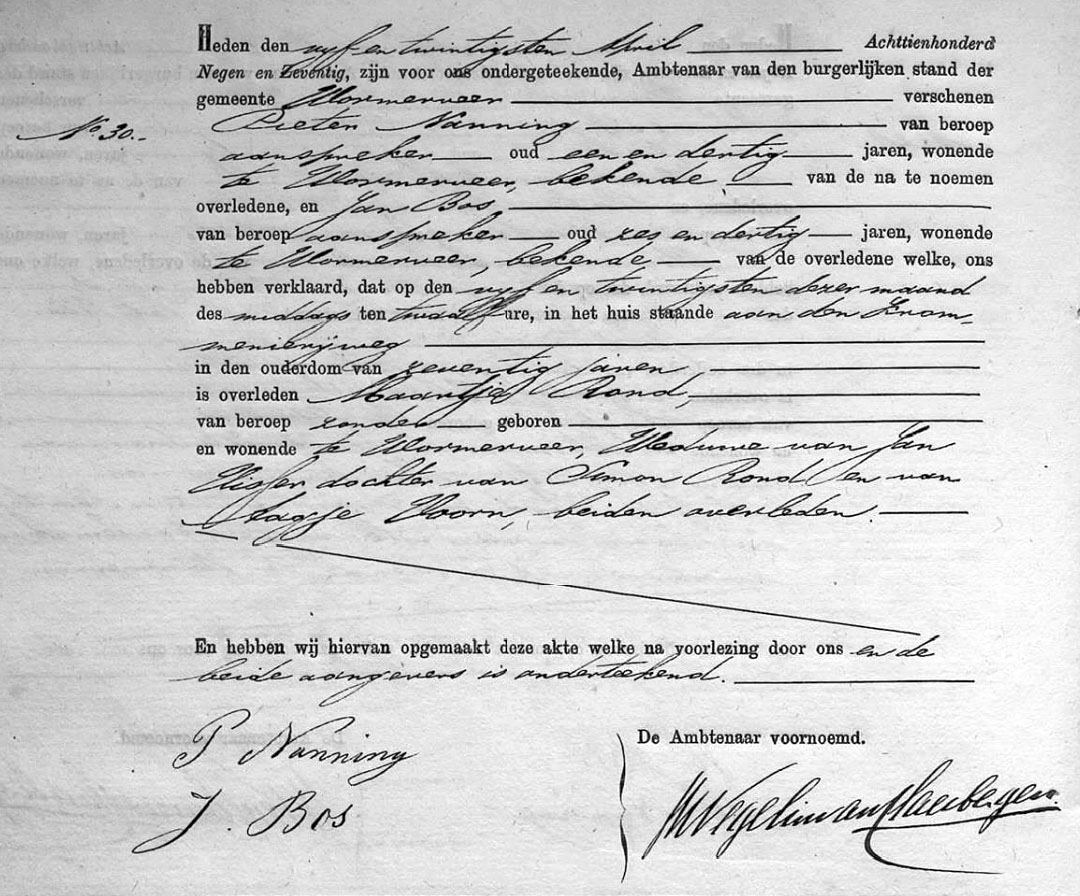 Heden den vyf en twintigsten April Achttienhonderd
Negen en Zeventig, zijn voor ons ondergeteekende, Ambtenaar van den burgerlijken stand der
gemeente Wormerveer verschenen
No 30.- Pieter Nanning van beroep
aanspreker oud een en dertig jaren, wonende
te Wormerveer, bekende van de na te noemen
overledene, en Jan Bos,
van beroep aanspreker oud zes en dertig jaren, wonende
te Wormerveer, bekende van de overledene welke, ons
hebben verklaard, dat op den vyf en twintigsten dezer maand
des middags ten twaalf ure, in het huis staande aan den Krom-
menierijweg
in den ouderdom van zeventig jaren
is overleden Maartje Rond,
van beroep zonder geboren
en wonende te Wormerveer, Weduwe van Jan
Visser dochter van Simon Rond en van
Aagje Hoorn, beiden overleden.
En hebben wij hiervan opgemaakt deze akte welke na voorlezing door ons en de
beide aangevers is onderteekend.
P Nanning
J. Bos
De Ambtenaar voornoemd.